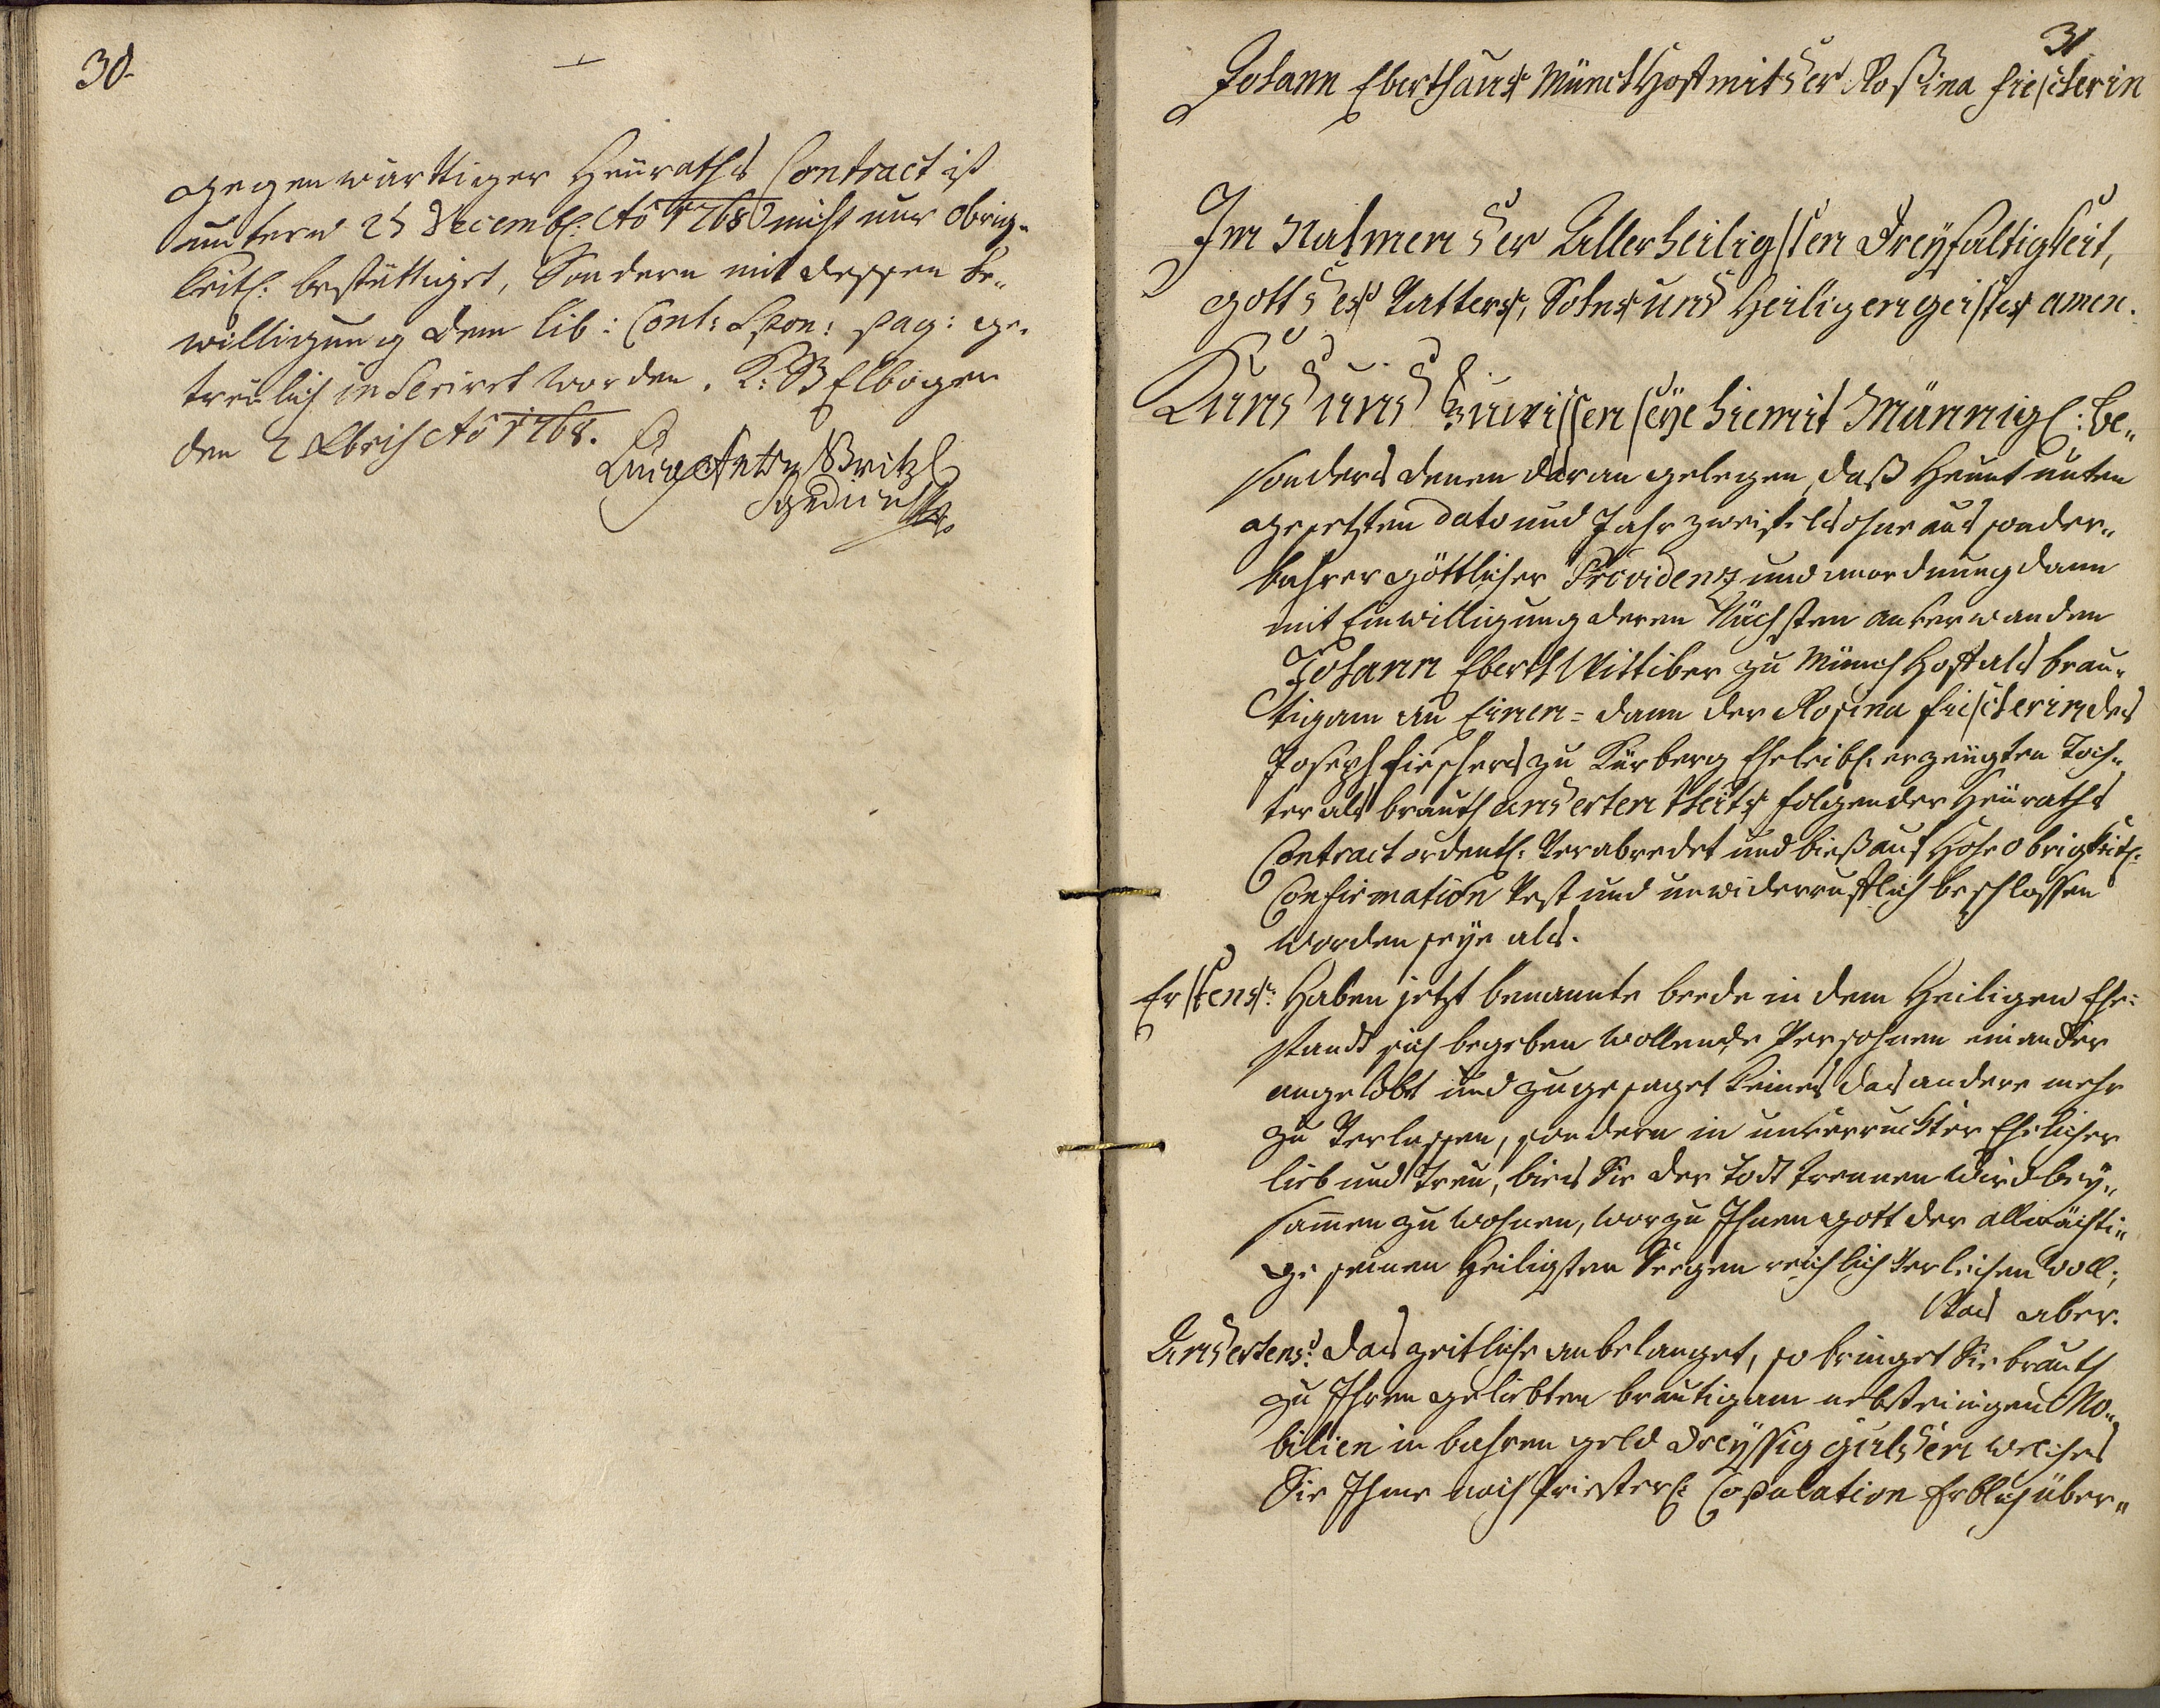 30.
gegenwärttiger Heüraths Contract ist
untern 25 Decemb: Aō 1768 nicht nur obrig„
keitl: bestättiget, Sondern mit dessen be„
willigung dem lib: Cont: Spon: pag: ge„
treülich inseriret worden. K: B Elbogen
den Xbris Aō 1768.
Anton Britzl
Syndicus
31
Johann Eberthans Münchhoff mit der Roßina fiescherin
Im Nahmen der Allerheiligsten Dreyfaltigkeit,
gott des Vatters, Sohns und Heiligen geistes amen.
Kund und Zuwissen seye hiemit Männigl: be„
sonders denen daran gelegen, daß Heunt unten
gesetzten dato und Jahr zweifelsohne aus sonder„
bahrer göttlicher Providenz und anordnung dann
mit Einwilligung deren Nächsten anverwanden
Johann Eberth Wittiber zu Münchhoff als breu„
tigam an Einen = dann der Rosina fiescherin des
Joseph fieschers zu Kürberg Eheleibl: erzeügten Toch„
ter als brauth anderten theils folgender Heüraths
Contract ordentl: Verabredet und bieß auf Hohe obrigkeitl:
Confirmation Vest und unwiderrufflich beschlossen
worden seye als.
Erstens: Haben jetzt benannte beede in dem Heiligen Ehe:
standt sich begeben wollende Persohnen einander
angelobt und zugesaget keines das andere mehr
zu Verlassen, sondern in unverruckter Ehelicher
lieb und treu, bies Sie der todt trennen wird bey„
samen zu wohnen, worzu Ihnen gott der allmächti„
ge seinen Heiligsten Seegen reichlich Verleihen woll;
Was aber.
Andertens: das zeitliche anbelanget, so bringet Sie brauth
zu Ihren geliebten breutigam nebst einigen Mo„
bilien in bahren geld dreyssig gulden welches
Sie Ihme nach Priesterl: Copulation Erblich über„